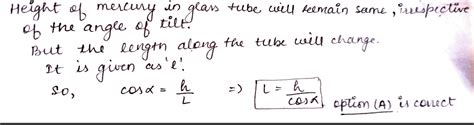 Height of mercury in glass tube will remain same, irrespective
of the angle of tilt.
But the length along the tube will change.
It is given as 'l'.
So, cosα = h/L ⇒ L = h/cosα option (A) is correct